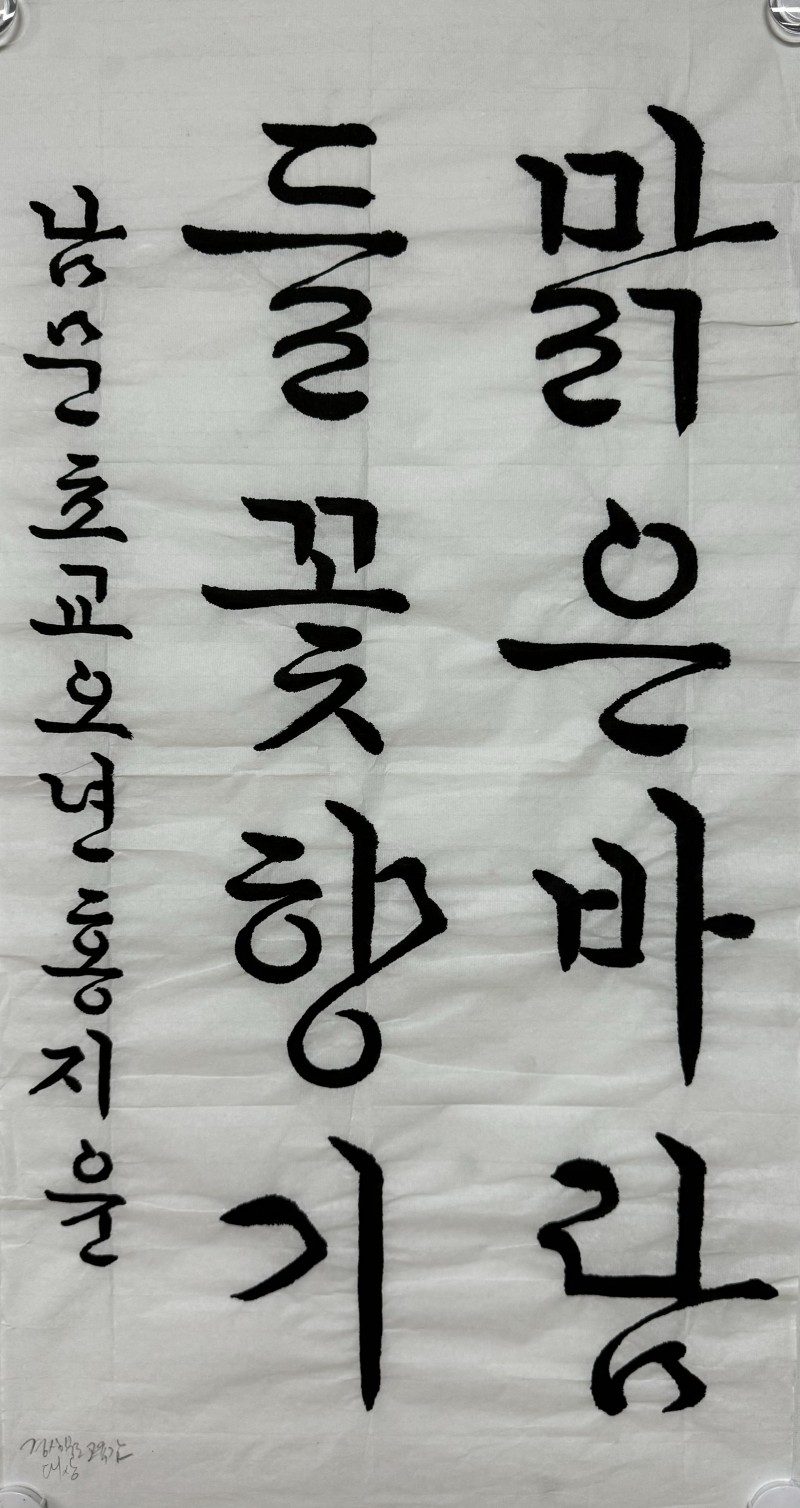 맑은바람
들꽃향기
남문초교오년홍지윤
대상